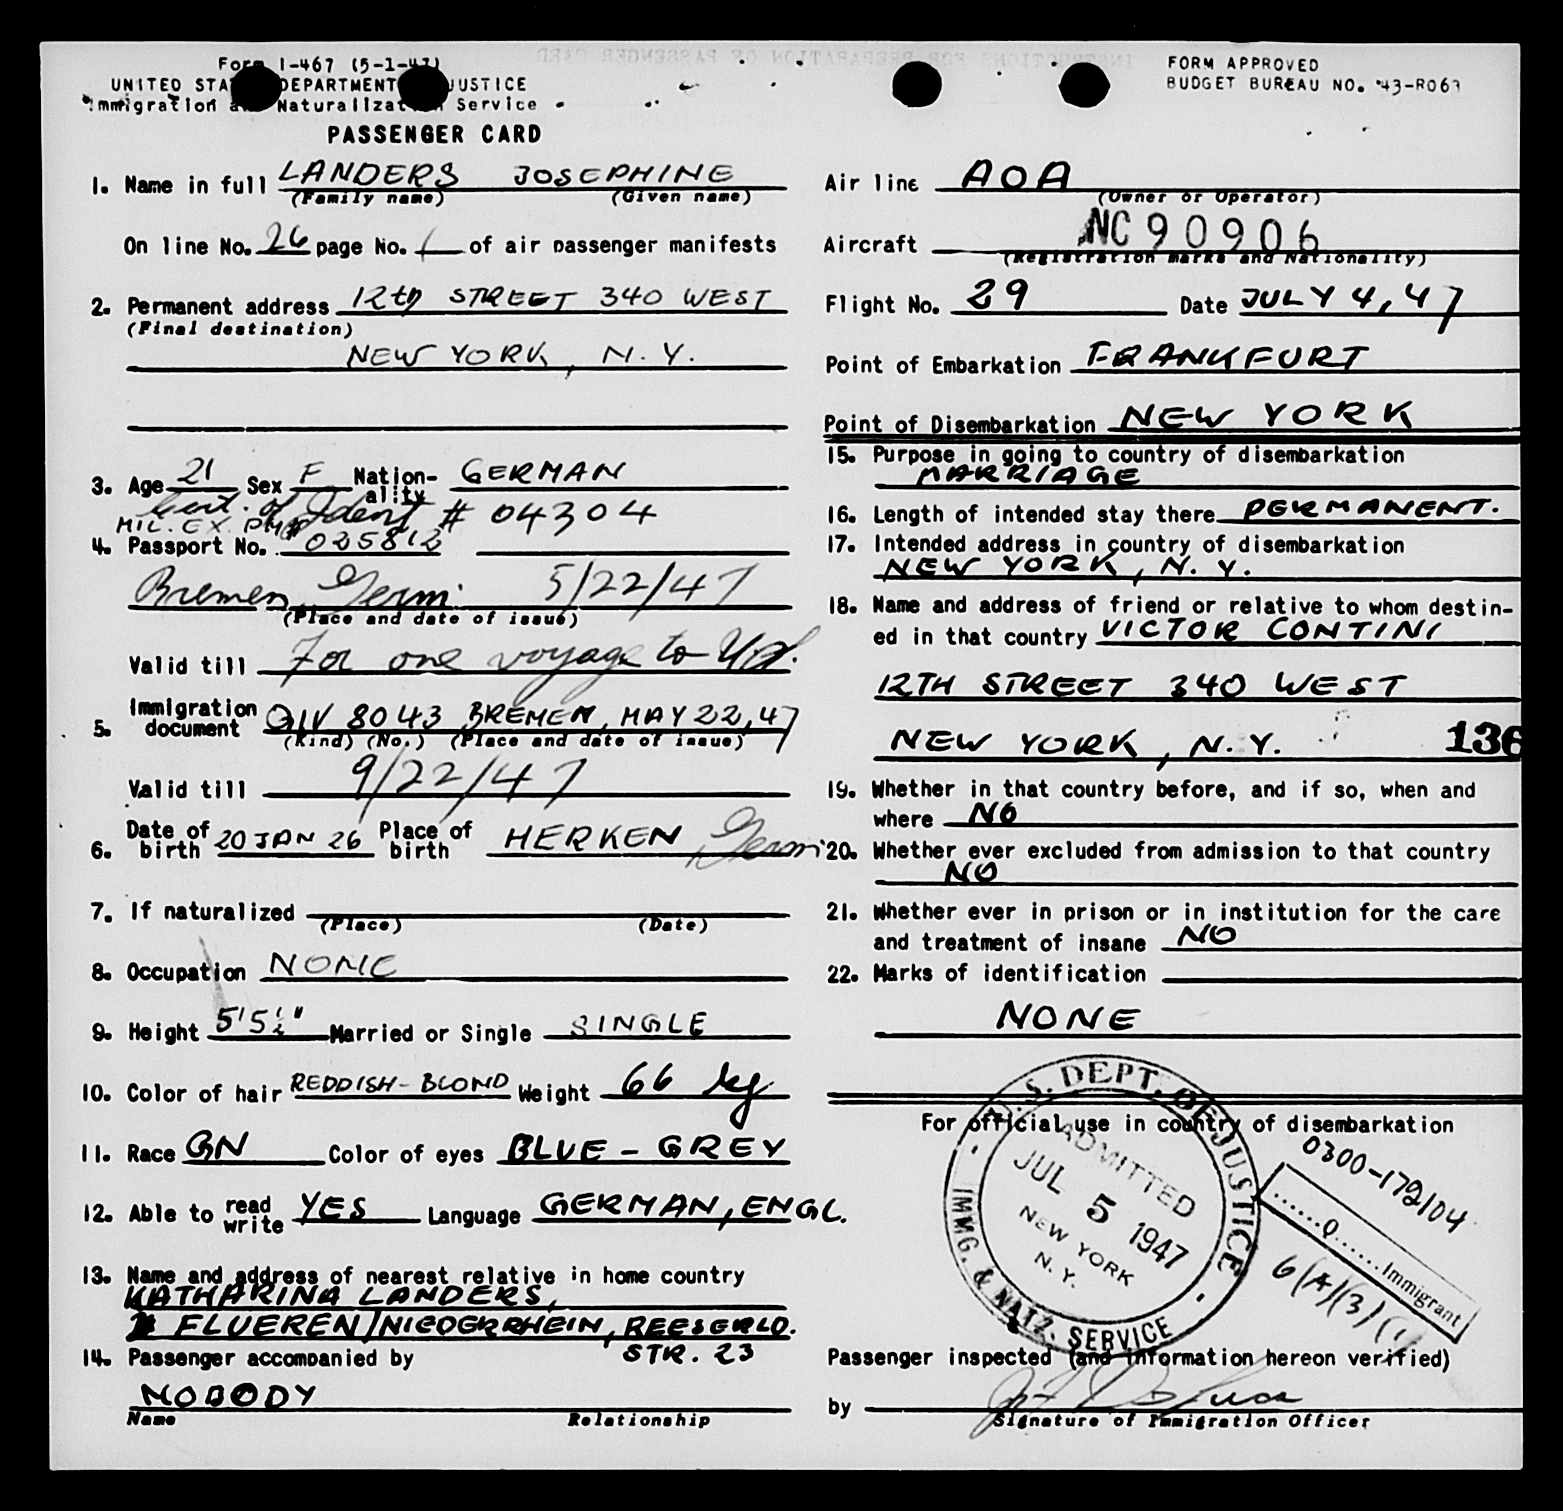 Form I-467 (5-1-47)
UNITED STA DEPARTMENT JUSTICE
Immigration a Naturalization Service
PASSENGER CARD
FORM APPROVED
BUDGET BUREAU NO. 43-R063
1. Name in full LANDERS JOSEPHINE
(Family name) (Given name)
On line No. 26 page No. 1 of air passenger manifests
2. Permanent address 12th STREET 340 WEST
(Final destination)
NEW YORK, N.Y.
3. Age 21 Sex F Nation-ality GERMAN
Cert. of Ident # 04304
MIL. EX. PMT
4. Passport No. 025812
Bremen, Germ. 5/22/47
(Place and date of issue)
Valid till For one voyage to U.S.
5. Immigration document QIV 8043 BREMEN, MAY 22, 47
(Kind) (No.) (Place and date of issue)
Valid till 9/22/47
6. Date of birth 20 JAN 26 Place of birth HERKEN, Germ
7. If naturalized
(Place) (Date)
8. Occupation NONE
9. Height 5'5½" Married or Single SINGLE
10. Color of hair REDDISH-BLOND Weight 66 kg
11. Race GN Color of eyes BLUE - GREY
12. Able to read write YES Language GERMAN, ENGL.
13. Name and address of nearest relative in home country
KATHARINA LANDERS,
FLUEREN/NIEDERRHEIN, REESERLD.
STR. 23
14. Passenger accompanied by
NOBODY
Name Relationship
Air line AOA
(Owner or Operator)
Aircraft NC90906
(Registration marks and Nationality)
Flight No. 29 Date JULY 4, 47
Point of Embarkation FRANKFURT
Point of Disembarkation NEW YORK
15. Purpose in going to country of disembarkation
MARRIAGE
16. Length of intended stay there PERMANENT.
17. Intended address in country of disembarkation
NEW YORK, N.Y.
18. Name and address of friend or relative to whom destin-
ed in that country VICTOR CONTINI
12TH STREET 340 WEST
NEW YORK, N.Y. 136
19. Whether in that country before, and if so, when and
where NO
20. Whether ever excluded from admission to that country
NO
21. Whether ever in prison or in institution for the care
and treatment of insane NO
22. Marks of identification
NONE
For official use in country of disembarkation
U.S. DEPT. OF JUSTICE
IMMG. & NATZ. SERVICE
ADMITTED
JUL 5 1947
NEW YORK
N.Y.
0300-172104
......Q......Immigrant
6(A)(3)(
Passenger inspected (and information hereon verified)
by
Signature of Immigration Officer